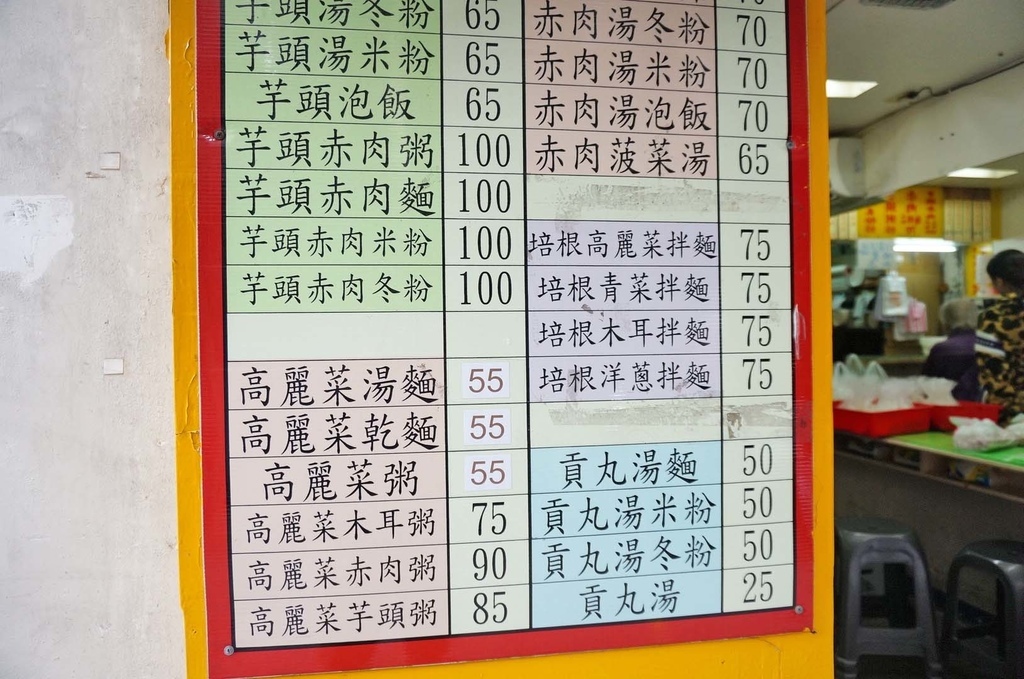 芋頭湯冬粉 65
芋頭湯米粉 65
芋頭泡飯 65
芋頭赤肉粥 100
芋頭赤肉麵 100
芋頭赤肉米粉 100
芋頭赤肉冬粉 100
高麗菜湯麵 55
高麗菜乾麵 55
高麗菜粥 55
高麗菜木耳粥 75
高麗菜赤肉粥 90
高麗菜芋頭粥 85
赤肉湯冬粉 70
赤肉湯米粉 70
赤肉湯泡飯 70
赤肉菠菜湯 65
培根高麗菜拌麵 75
培根青菜拌麵 75
培根木耳拌麵 75
培根洋蔥拌麵 75
貢丸湯麵 50
貢丸湯米粉 50
貢丸湯冬粉 50
貢丸湯 25